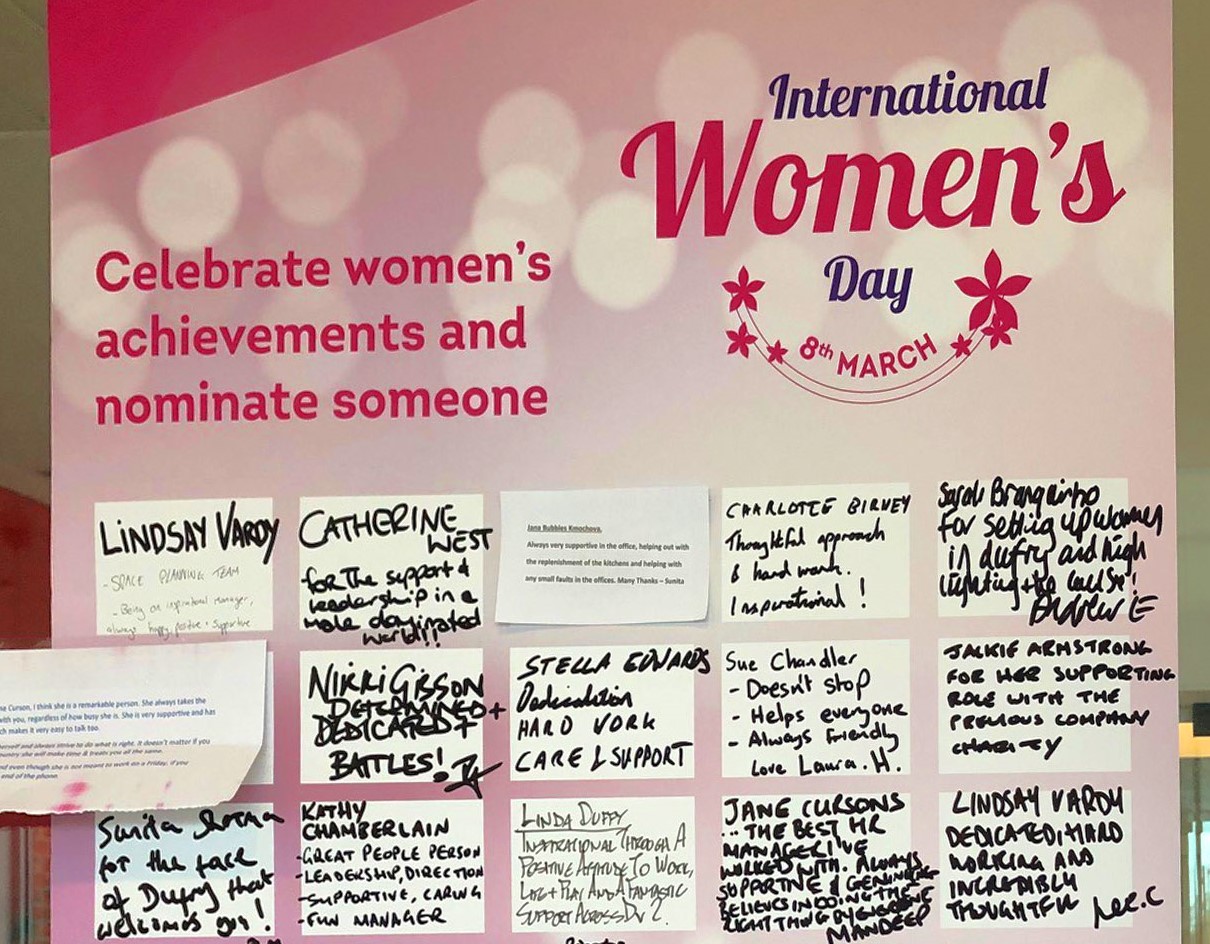 International
Women's
Day
8th MARCH
Celebrate women's
achievements and
nominate someone
LINDSAY VARDY
- SPACE PLANNING TEAM
- Being an inspirational manager,
always happy, positive + supportive
CATHERINE
WEST
for the support &
leadership in a
male dominated
world!!
Jana Bubbles Kmochova.
Always very supportive in the office, helping out with
the replenishment of the kitchens and helping with
any small faults in the offices. Many Thanks – Sunita
CHARLOTTE BIRNEY
Thoughtful approach
& hard work.
Inspirational !
Sarah Branquinho
for setting up women
in dufry and high
lighting the cause!
Andrew E
Curson, I think she is a remarkable person. She always takes the
with you, regardless of how busy she is. She is very supportive and has
makes it very easy to talk too.
herself and always strive to do what is right. It doesn't matter if you
she will make time & treats you all the same.
and even though she is not meant to work on a Friday, if you
end of the phone.
NIKKI GIBSON
DETERMINED +
DEDICATED +
BATTLES!
STELLA EDWARDS
Dedication
HARD WORK
CARE & SUPPORT
Sue Chandler
- Doesn't stop
- Helps everyone
- Always friendly
Love Laura. H.
JACKIE ARMSTRONG
FOR HER SUPPORTING
ROLE WITH THE
PREVIOUS COMPANY
CHARITY
Sunita
for the face
of Dufry that
welcomes you!
KATHY
CHAMBERLAIN
- GREAT PEOPLE PERSON
- LEADERSHIP, DIRECTION
- SUPPORTIVE, CARING
- FUN MANAGER
LINDA DUFFY
INSPIRATIONAL THROUGH A
POSITIVE ATTITUDE TO WORK,
LIFE + PLAY AND A FANTASTIC
SUPPORT ACROSS DIV 2.
JANE CURSONS
... THE BEST HR
MANAGER I'VE
WORKED WITH. ALWAYS
SUPPORTIVE & GENUINELY
BELIEVES IN DOING THE
RIGHT THING BY EVERYONE
MANDEEP
LINDSAY VARDY
DEDICATED, HARD
WORKING AND
INCREDIBLY
THOUGHTFUL
Lee.C